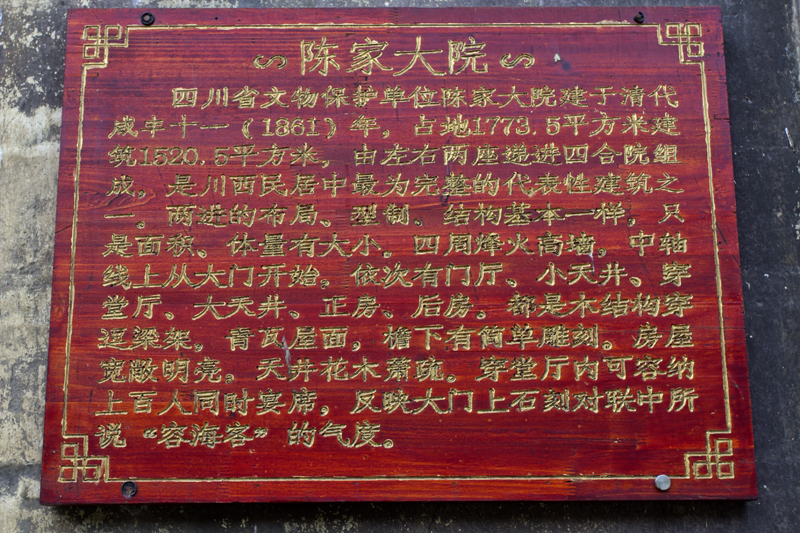 陈家大院
四川省文物保护单位陈家大院建于清代
咸丰十一（1861）年，占地1773.5平方米建
筑1520.5平方米，由左右两座递进四合院组
成。是川西民居中最为完整的代表性建筑之
一。两进的布局、型制、结构基本一样，只
是面积、体量有大小。四周烽火高墙，中轴
线上从大门开始。依次有门厅、小天井、穿
堂厅、大天井、正房、后房。都是木结构穿
逗梁架，青瓦屋面，檐下有简单雕刻。房屋
宽敞明亮。天井花木萧疏。穿堂厅内可容纳
上百人同时宴席，反映大门上石刻对联中所
说“容海客”的气度。